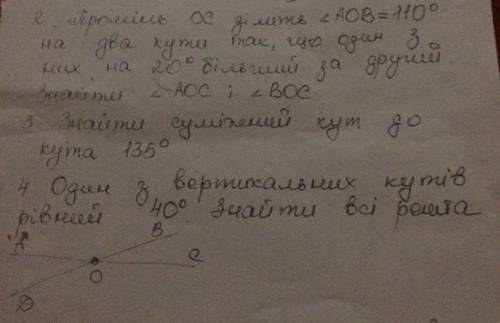 2. Промінь ОС ділить ∠AOB=110°
на два кути так, що один з
них на 20° більший за другий.
Знайти ∠AOC і ∠BOC
3 Знайти суміжний кут до
кута 135°
4 Один з вертикальних кутів
рівний 40° Знайти всі решта
A B
O C
D